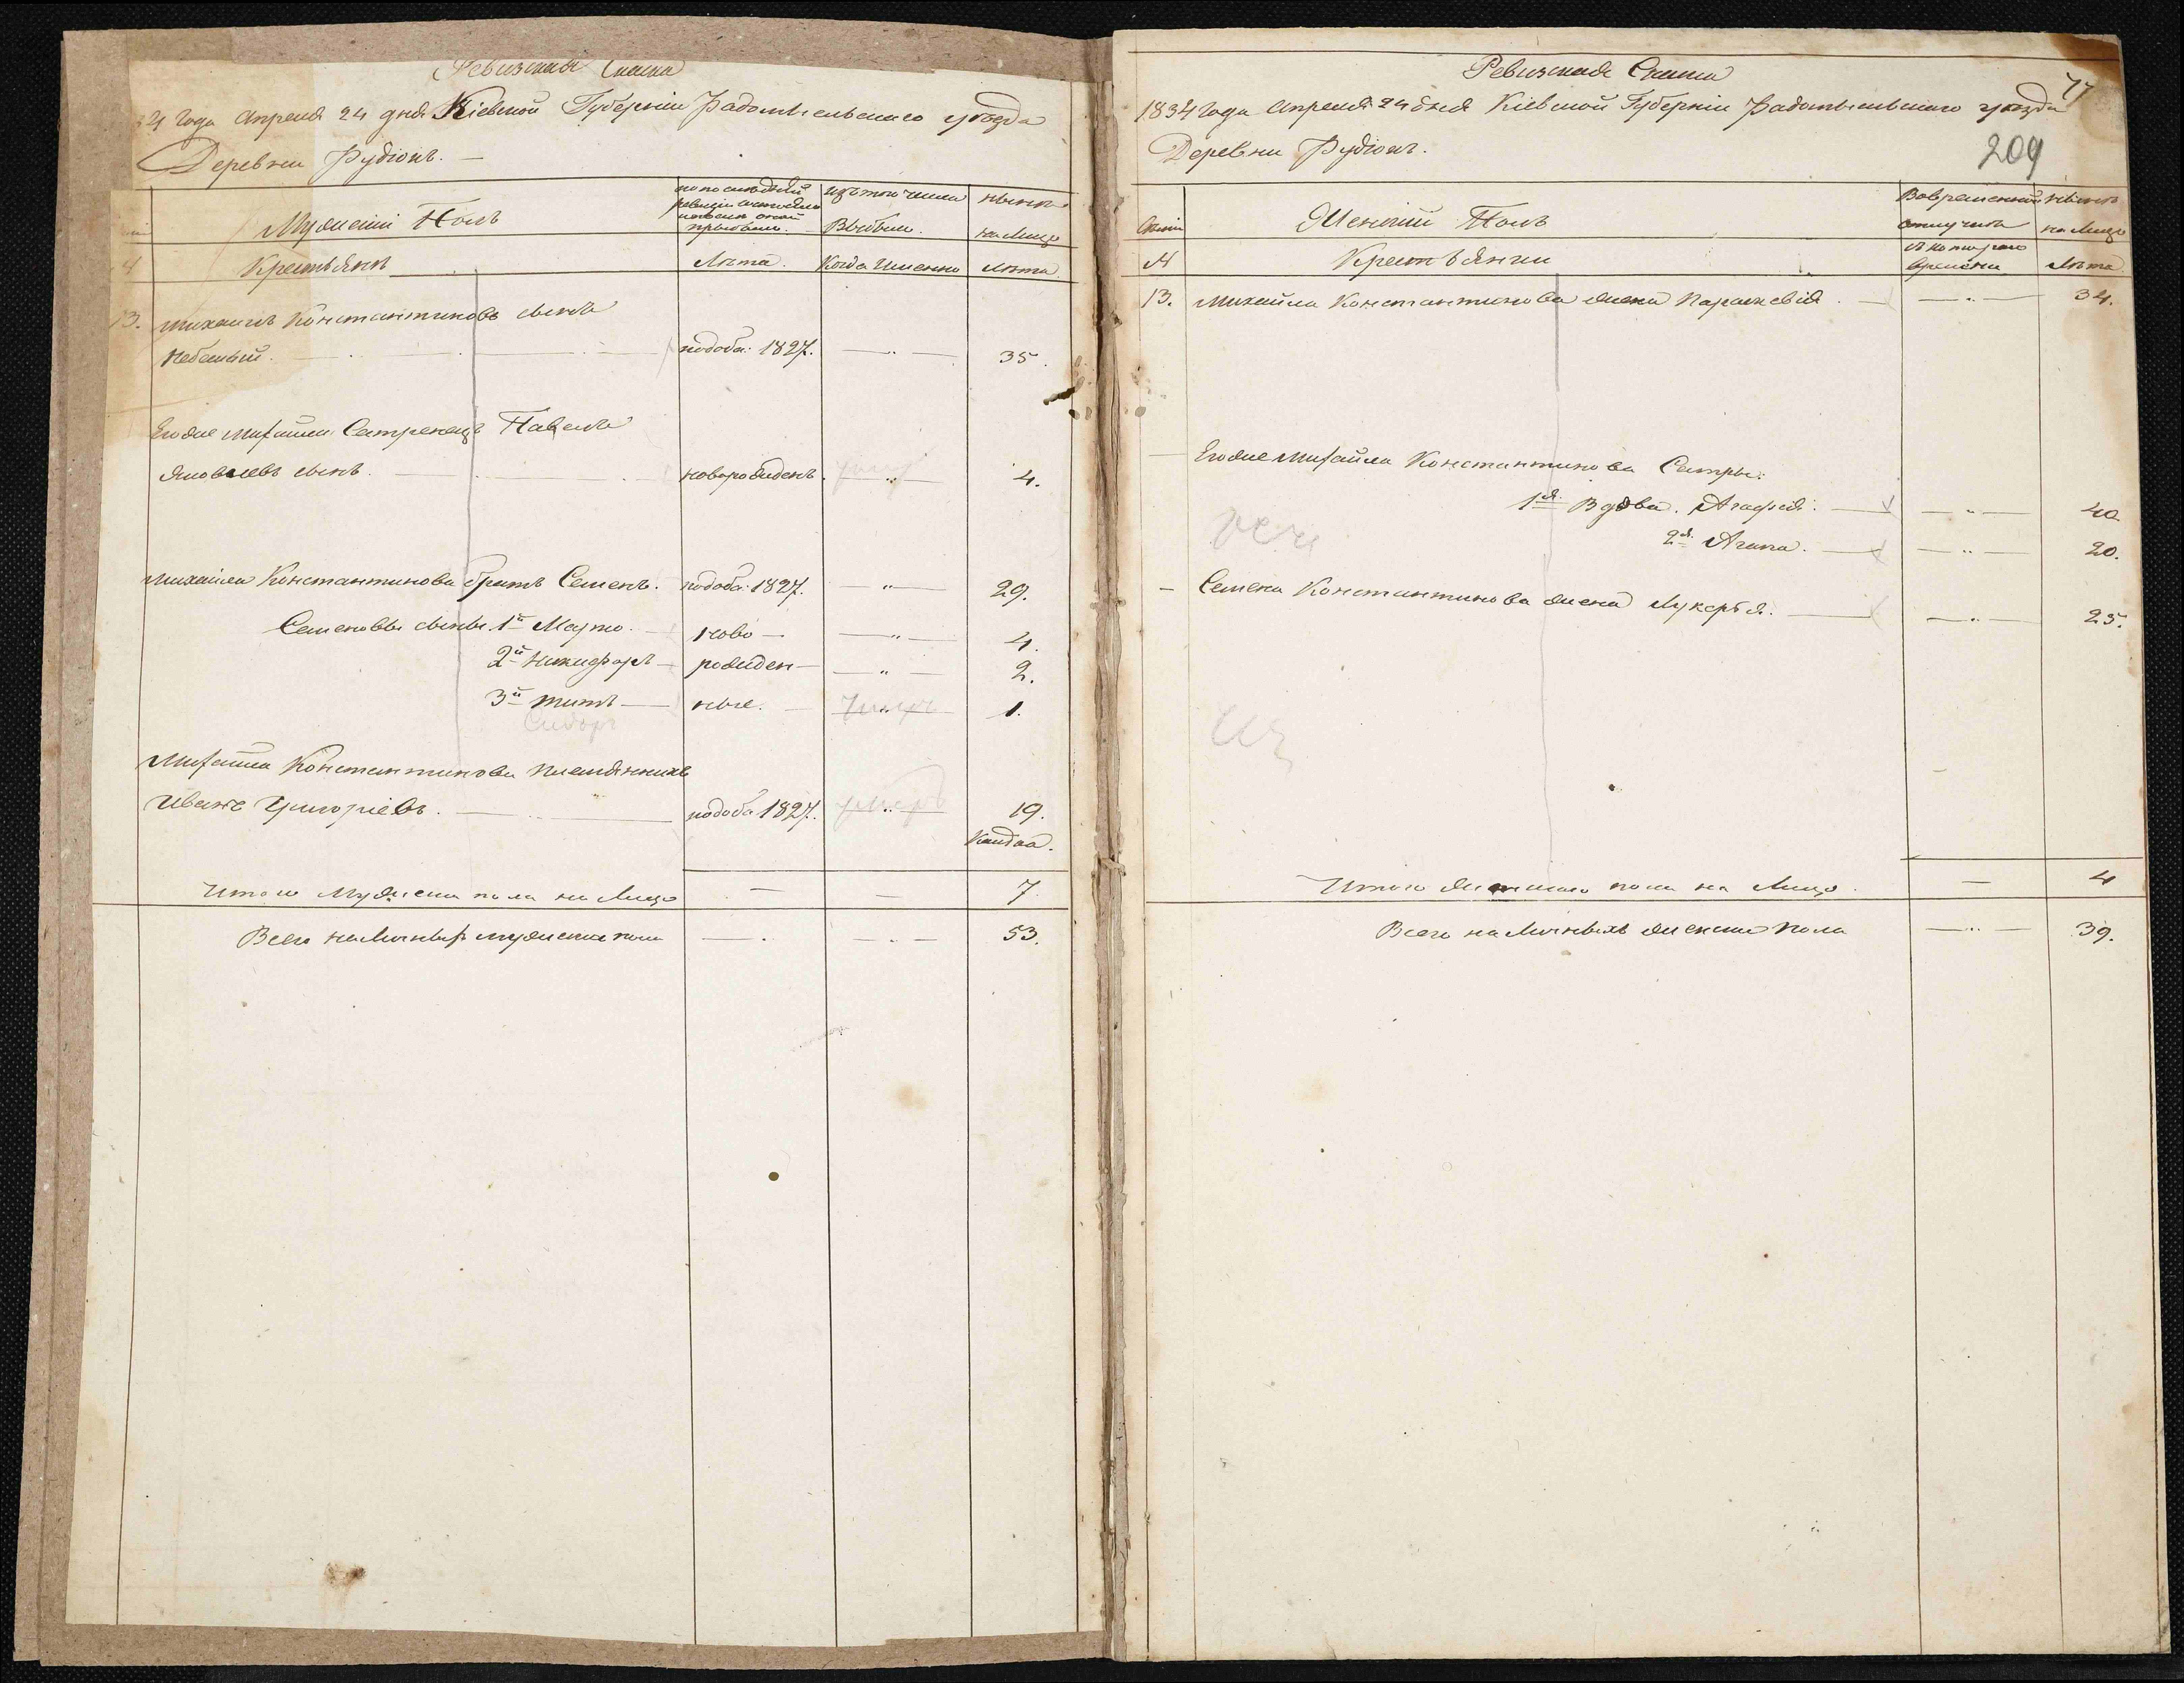 Ревизская Сказка
34 Года Апреля 24 дня Кіевской Губерніи Радомысльскаго уѣзда
Деревни Рудiокъ. —
Мужескій Полъ
по последней ревизіи состояло и послѣ оной прибыло.
Изъ того числа Выбыло.
нынѣ на Лицо
4
Крестьянѣ
Лѣта.
Когда Именно
Лѣта
13. Михаилъ Константиновъ сынъ
подоба: 1827. — " — 35.
Егоже Михайла Сестренецъ Павелъ
Яковлевъ сынъ. новорожденъ. — " — 4.
Михайла Константинова братъ Семенъ. подоба: 1827. " — 29.
Семеновы сыны. 1й Марто. ново — — " — 4.
2й Никифоръ — рожден — — " — 2.
3й Титъ — ные. умеръ 1.
Сидоръ
Михайла Константинова племянникъ
Иванъ Григоріевъ. подоба 1827. умеръ 19.
Итого Мужеска пола на Лицо — — 7.
Всего наличныхъ мужеска пола — . — .. — 53.
Ревизская Сказка
77
1834 Года Апреля 24 дня Кіевской Губерніи Радомысльскаго уѣзда
209
Деревни Рудiокъ.
Женскій Полъ
Во временной отлучкѣ
нынѣ на Лицо
№
Крестьянки
Съ котораго времени
Лѣта
13. Михайла Константинова жена Параскевія. — " — 34.
Егоже Михайла Константинова Сестры:
1я Вдова. Агафія. — " — 40.
2я Агапа. — " — 20.
— Семена Константинова жена Лукерья. — " — 25.
Итого женскаго пола на Лицо. — 4
Всего наличныхъ женска пола — " — 39.